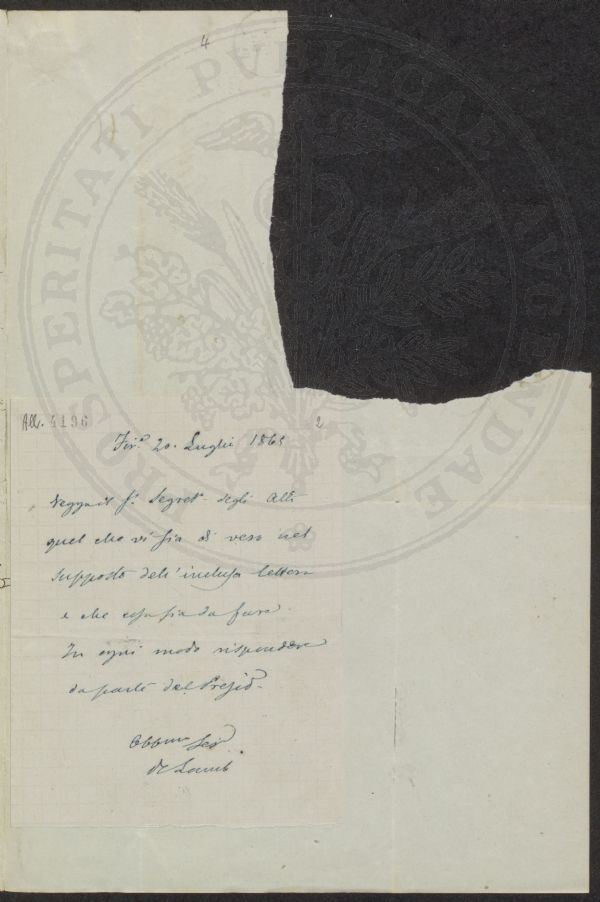 4
PROSPERITATI PVBLICAE AVGENDAE
All. 4196
2
Fir.e 20. Luglio 1865
Vegga il S. Segret.o degli Atti
quel che vi sia di vero nel
supposto dell'inclusa lettera
e che cosa sia da fare.
In ogni modo rispondere
da parte del Presid.
Obbmo